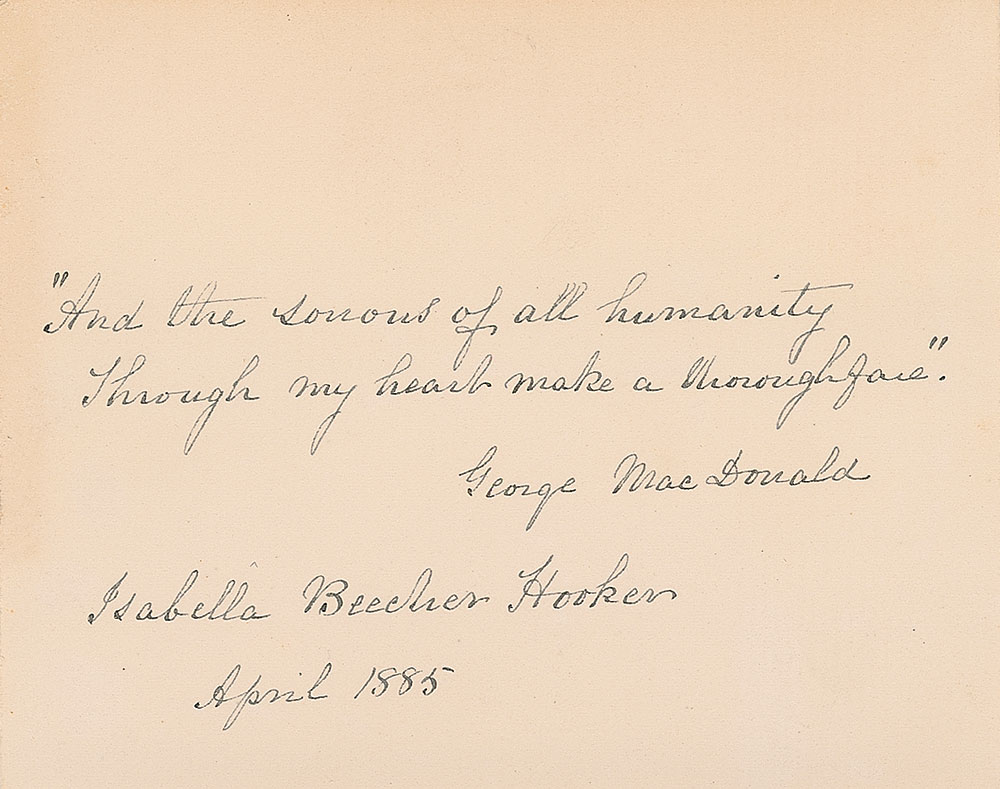 "And the sorrows of all humanity
Through my heart make a thoroughfare".
George MacDonald
Isabella Beecher Hooker
April 1885